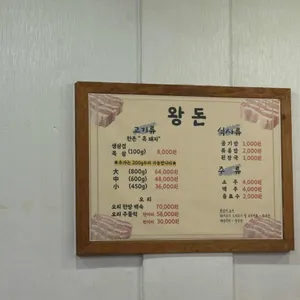 왕 돈
고기류
한돈 " 흑 돼지"
생삼겹
목 살 (100g) 8,000원
大 (800g) 64,000원
中 (600g) 48,000원
小 (450g) 36,000원
요 리
오리 한방 백숙 70,000원
오리 주물럭 한마리 58,000원
반마리 30,000원
식사류
공기밥 1,000원
볶음밥 2,000원
된장국 1,000원
주 류
소 주 4,000원
맥 주 4,000원
음료수 2,000원